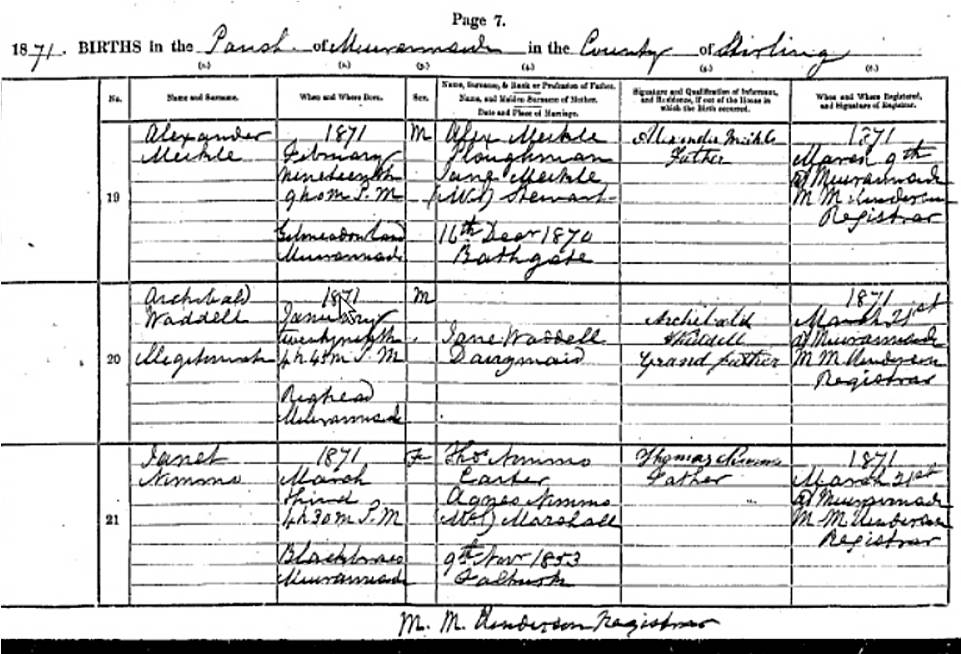 Page 7.
1871. BIRTHS in the Parish of Muiravonside in the County of Stirling
(1.) (2.) (3.) (4.) (5.) (6.)
No.
Name and Surname.
When and Where Born.
Sex.
Name, Surname, & Rank or Profession of Father.
Name, and Maiden Surname of Mother.
Date and Place of Marriage.
Signature and Qualification of Informant,
and Residence, if out of the House in
which the Birth occurred.
When and Where Registered,
and Signature of Registrar.
19
Alexander
Meikle
1871
February
nineteenth
9h 0m P.M
Muiravonside
M
Alex Meikle
Ploughman
Jane Meikle
(M.S) Stewart
16th Decr 1870
Bathgate
Alexander Meikle
Father
1871
March 9th
at Muiravonside
M M Henderson
Registrar
20
Archibald
Waddell
Illegitimate
1871
January
twentyninth
4h 45m P.M
Righead
Muiravonside
M
Jane Waddell
Dairymaid
Archibald
Waddell
Grand father
1871
March 21st
at Muiravonside
M M Henderson
Registrar
21
Janet
Nimmo
1871
March
third
4h 30m P.M
Blackbraes
Muiravonside
F
Thos Nimmo
Carter
Agnes Nimmo
(M.S) Marshall
9th Novr 1853
Falkirk
Thomas Nimmo
Father
1871
March 21st
at Muiravonside
M M Henderson
Registrar
M. M. Henderson Registrar